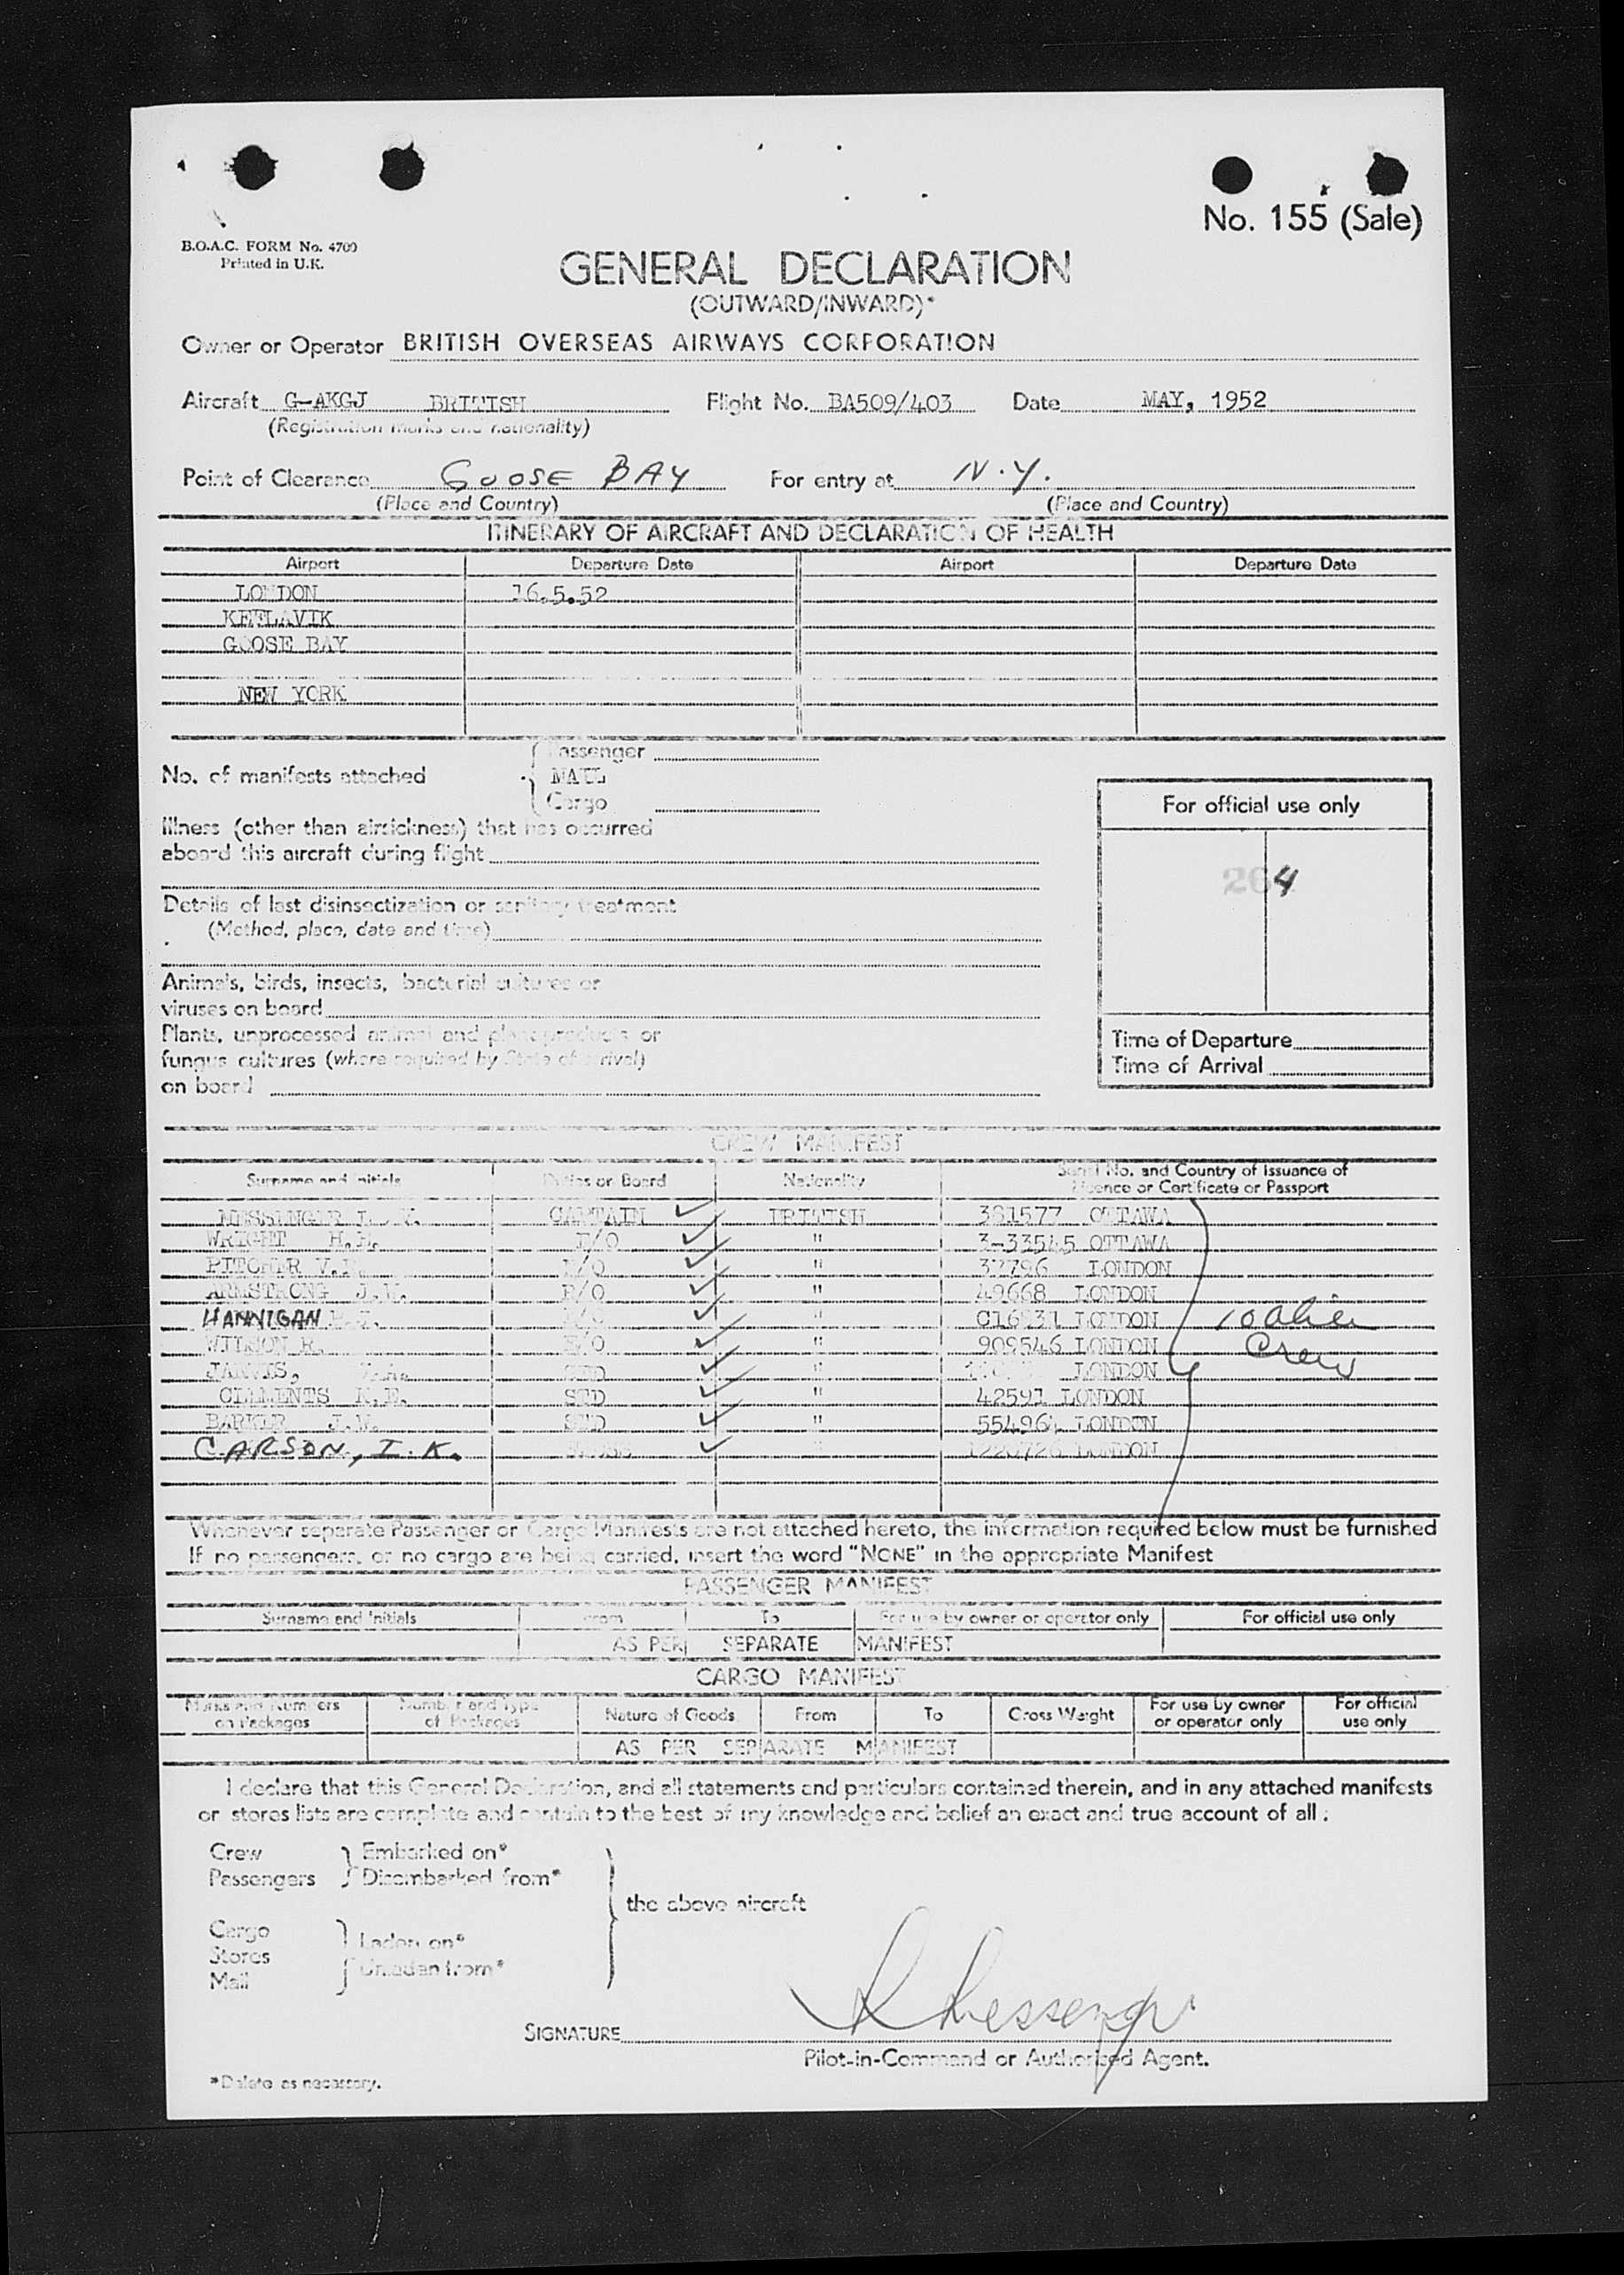 No. 155 (Sale)
B.O.A.C. FORM No. 4700
Printed in U.K.
GENERAL DECLARATION
(OUTWARD/INWARD)*
Owner or Operator BRITISH OVERSEAS AIRWAYS CORPORATION
Aircraft G-AKGJ BRITISH Flight No. BA509/403 Date MAY, 1952
(Registration marks and nationality)
Point of Clearance GOOSE BAY For entry at N.Y.
(Place and Country) (Place and Country)
ITINERARY OF AIRCRAFT AND DECLARATION OF HEALTH
Airport Departure Date Airport Departure Date
LONDON 16.5.52
KEFLAVIK
GOOSE BAY
NEW YORK
Passenger
No. of manifests attached MAIL
Cargo
For official use only
Illness (other than airsickness) that has occurred
aboard this aircraft during flight
264
Details of last disinsectization or sanitary treatment
(Method, place, date and time)
Animals, birds, insects, bacterial cultures or
viruses on board
Plants, unprocessed animal and plant products or
fungus cultures (where required by State of arrival)
on board
Time of Departure
Time of Arrival
CREW MANIFEST
Surname and Initials Duties on Board Nationality Serial No. and Country of Issuance of
Licence or Certificate or Passport
MESSENGER CAPTAIN ✓ BRITISH 381577 OTTAWA
WRIGHT F/O ✓ " 3-33545 OTTAWA
PITCHER ✓ " LONDON
ARMSTRONG R/O ✓ " 49668 LONDON
HANNIGAN ✓ " LONDON 10 alien
WILSON R. ✓ " 909546 LONDON Crew
JARVIS, STD ✓ " LONDON
CLEMENTS STD ✓ " 42591 LONDON
BARKER STD ✓ " LONDON
CARSON, I.K. ✓ " LONDON
Whenever separate Passenger or Cargo Manifests are not attached hereto, the information required below must be furnished
If no passengers, or no cargo are being carried, insert the word "NONE" in the appropriate Manifest
PASSENGER MANIFEST
Surname and Initials From To For use by owner or operator only For official use only
AS PER SEPARATE MANIFEST
CARGO MANIFEST
Marks and Numbers on Packages Number and Type of Packages Nature of Goods From To Gross Weight For use by owner or operator only For official use only
AS PER SEPARATE MANIFEST
I declare that this General Declaration, and all statements and particulars contained therein, and in any attached manifests
or stores lists are complete and contain to the best of my knowledge and belief an exact and true account of all :
Crew Embarked on*
Passengers Disembarked from*
the above aircraft
Cargo
Stores Laden on*
Mail Unladen from*
SIGNATURE Messenger
Pilot-in-Command or Authorised Agent.
*Delete as necessary.